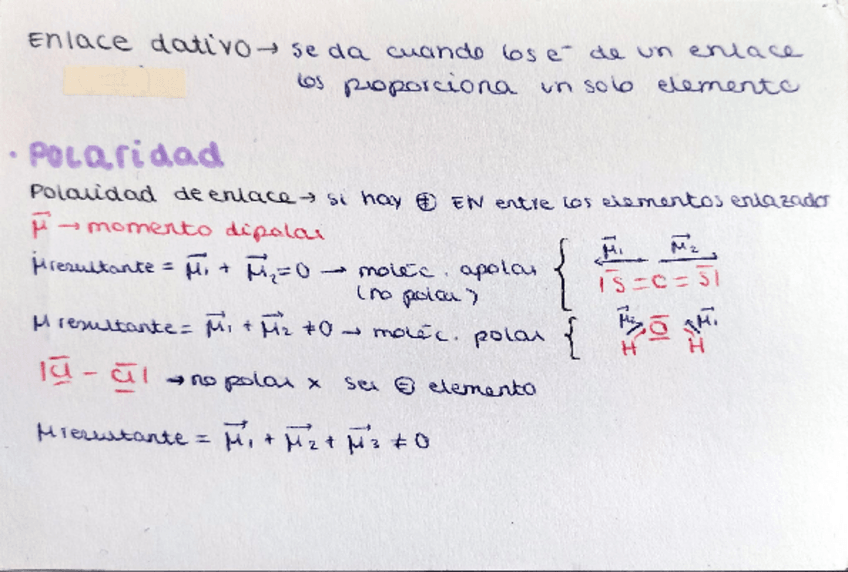 Enlace dativo → se da cuando los e⁻ de un enlace
los proporciona un solo elemento
· Polaridad
Polaridad de enlace → si hay ⊕ EN entre los elementos enlazados
μ⃗ → momento dipolar
μ resultante = μ⃗₁ + μ⃗₂ = 0 → moléc. apolar
(no polar)
μ⃗₁ μ⃗₂
|S̄ = C = S̄|
μ resultante = μ⃗₁ + μ⃗₂ ≠ 0 → moléc. polar
μ⃗₂ O μ⃗₁
H H
|Cl - Cl| → no polar x ser ⊜ elemento
μ resultante = μ⃗₁ + μ⃗₂ + μ⃗₃ ≠ 0